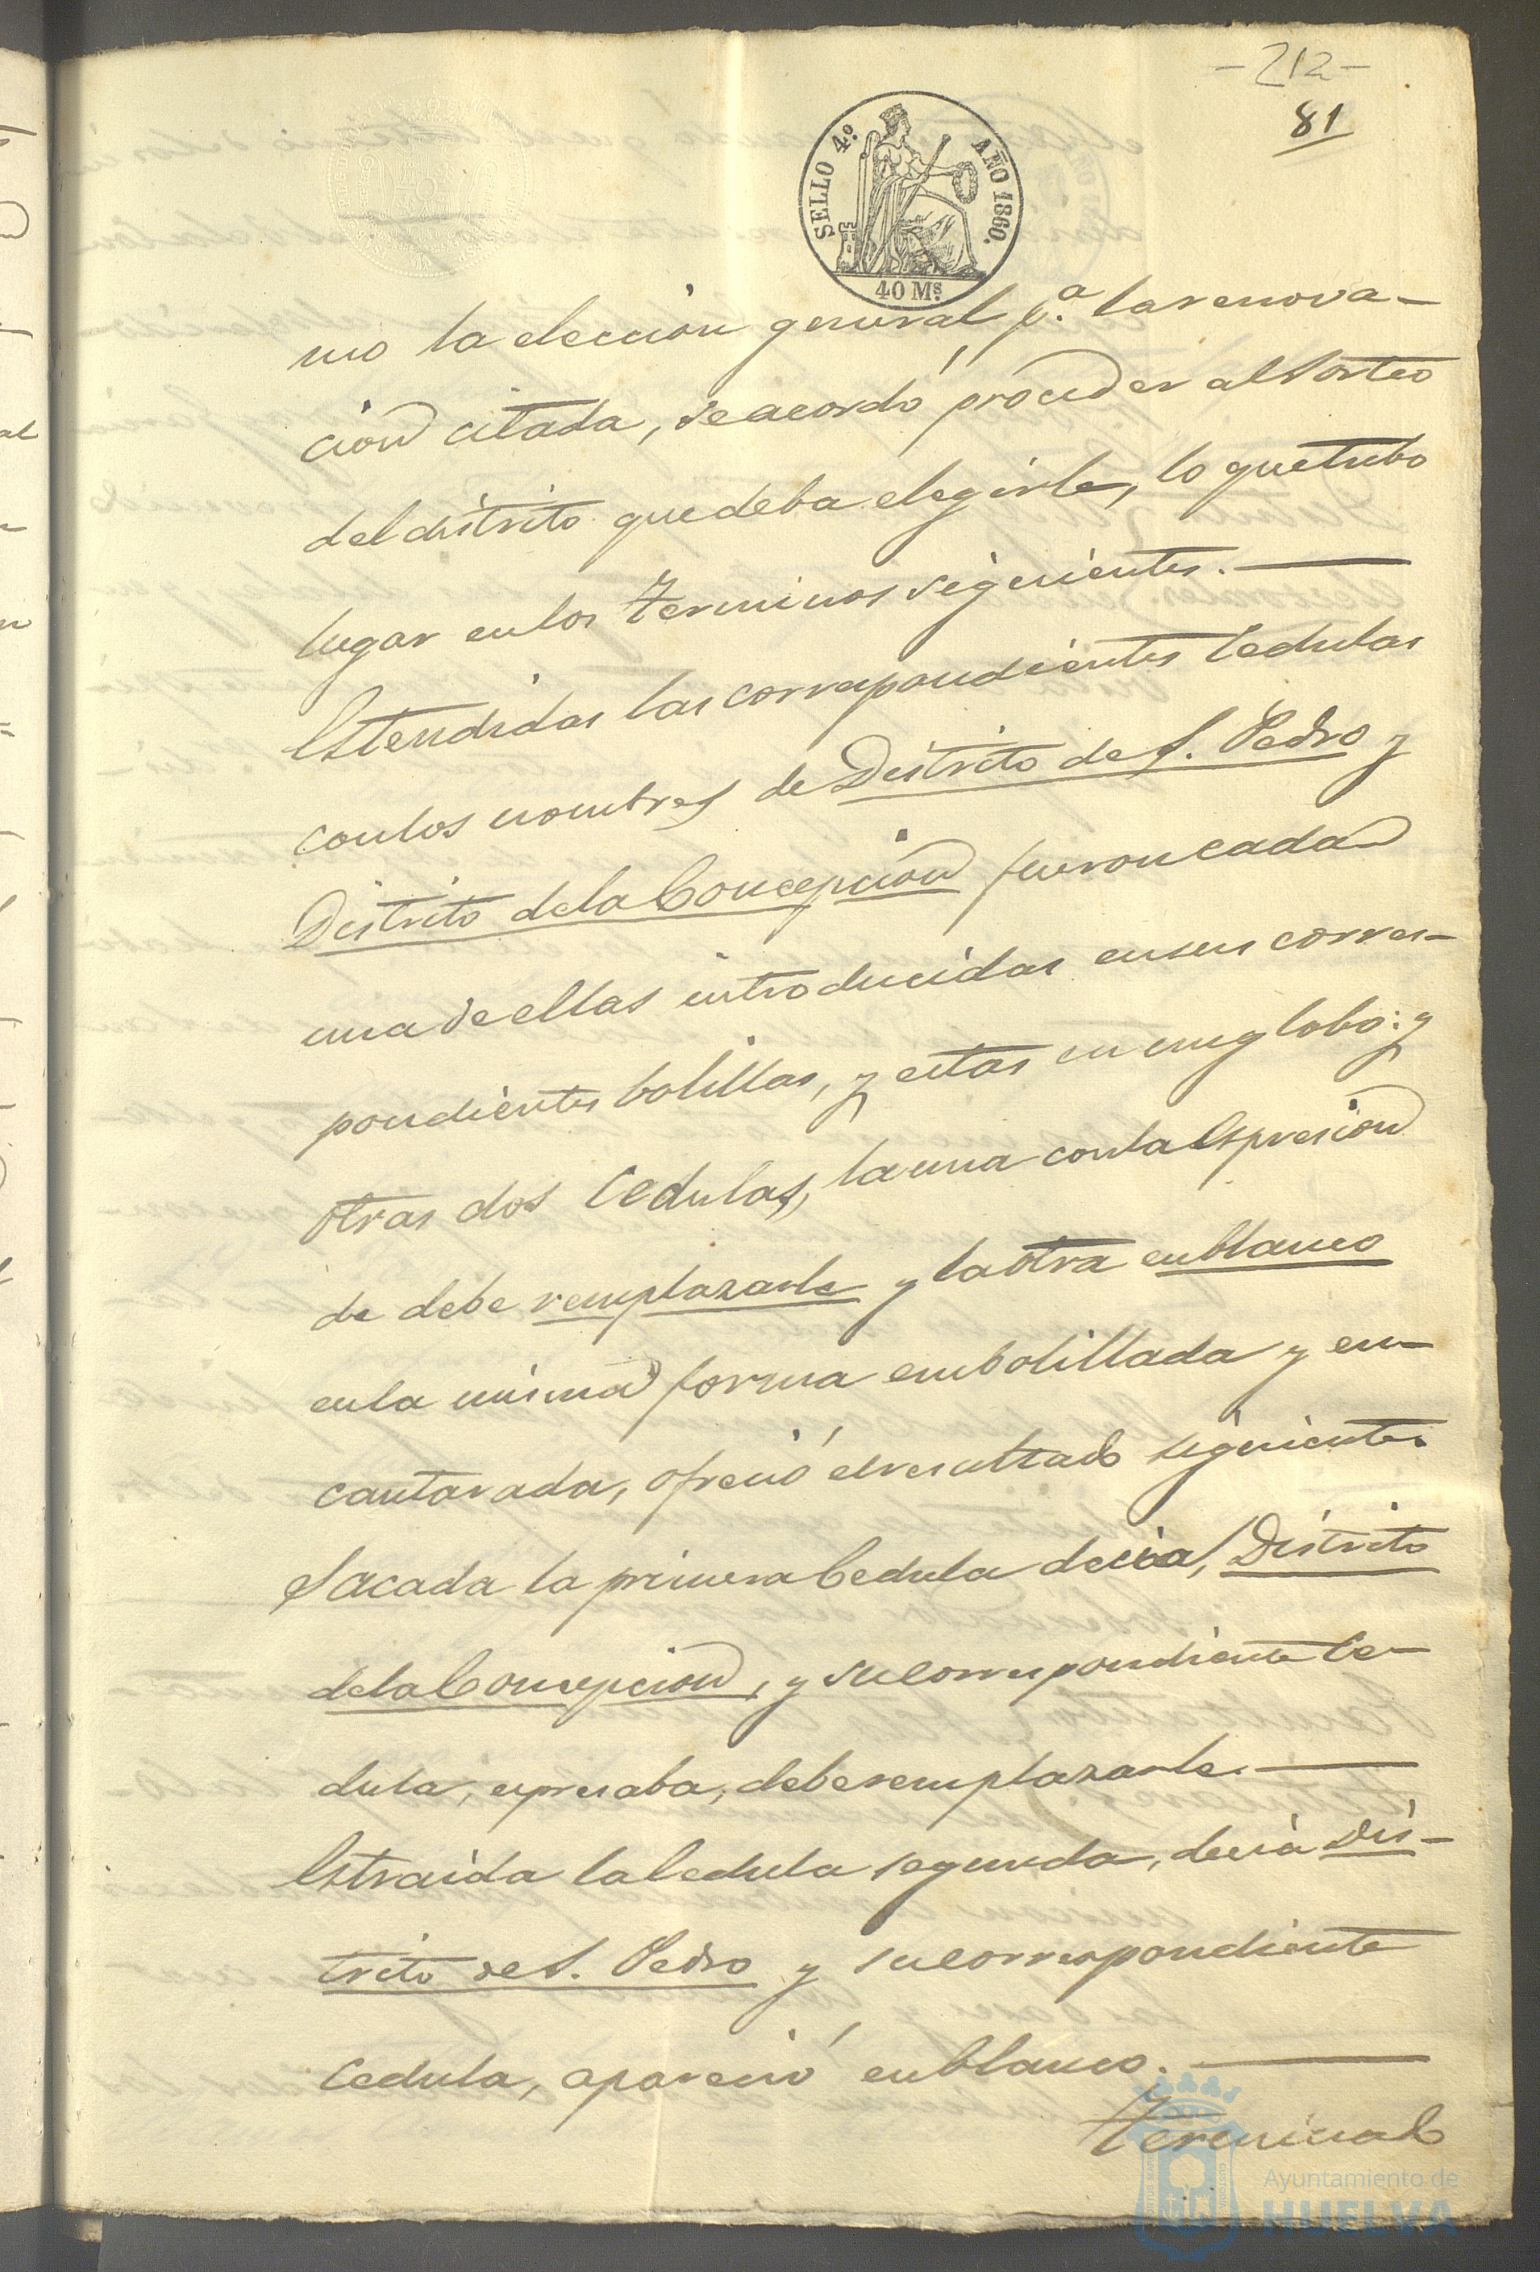 -212-
81
SELLO 4.º AÑO 1860.
40 Ms.
mo la eleccion general p.ª la renova-
cion citada, se acordó proceder al sorteo
del distrito que deba elegirle, lo que tubo
lugar en los terminos siguientes.
Estendidas las correspondientes Cedulas
con los nombres de Distrito de S. Pedro y
Distrito de la Concepcion fueron cada
una de ellas introducidas en sus corres-
pondientes bolillas, y estas en un globo: y
otras dos Cedulas, la una con la espresion
de debe remplazarle y la otra en blanco
en la misma forma embolillada y en-
cantarada, ofreció el resultado siguiente.
Sacada la primera Cedula decia, Distrito
de la Concepcion, y su correspondiente Ce-
dula, espresaba, debe remplazarle.
Estraida la Cedula segunda, decia Dis-
trito de S. Pedro y su correspondiente
Cedula, apareció en blanco.
Terminado
Ayuntamiento de
HUELVA